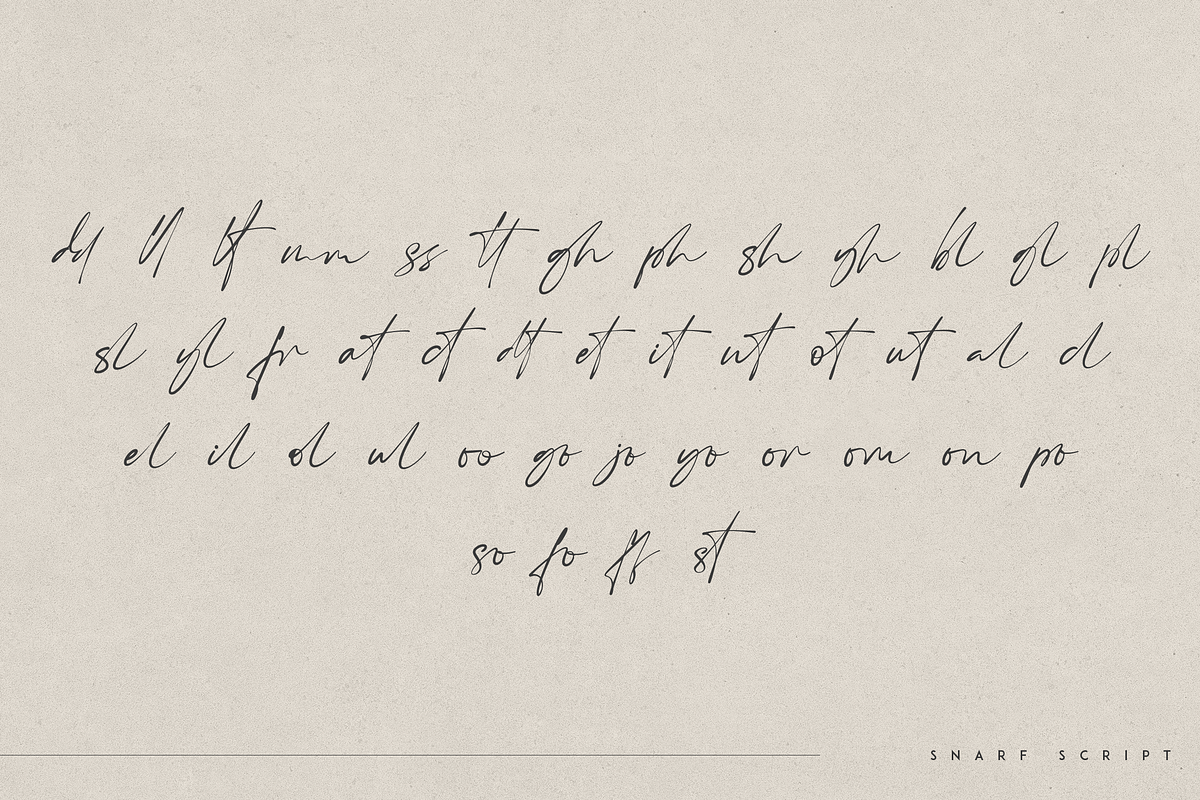 dd ll lt mm ss tt gh ph sh yh bl gl pl
sl yl fr at ct dt et it ut ot ut al cl
el il ol ul oo go jo yo or om on po
so fo ff st
SNARF SCRIPT